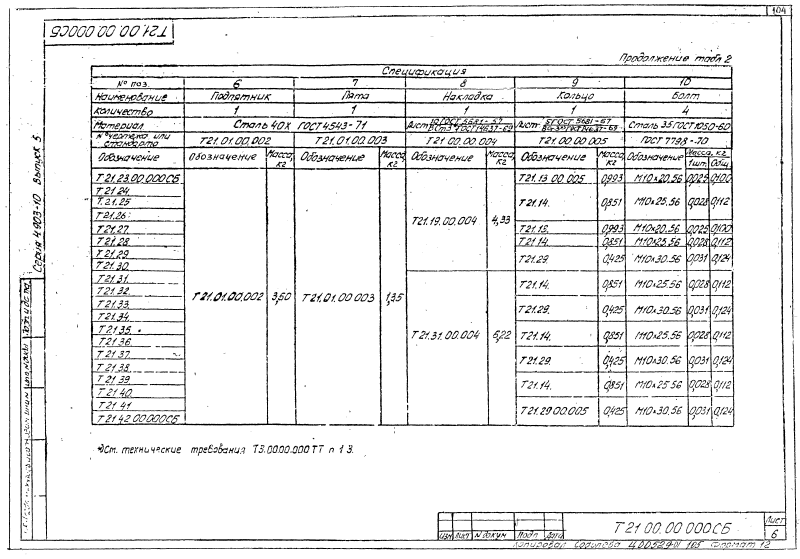 104
Т21 00 00 000СБ
Продолжение табл 2
Спецификация
№ поз. 6 7 8 9 10
Наименование Подпятник Пята Накладка Кольцо Болт
Количество 1 1 1 1 4
Материал Сталь 40Х ГОСТ 4543-71 Лист Лист Сталь 35 ГОСТ 1050-60
№ чертежа или стандарта Т21.01.00.002 Т21.01.00.003 Т21 00 00 004 Т21 00 00 005 ГОСТ 7798-70
Обозначение Обозначение Масса, кг Обозначение Масса, кг Обозначение Масса, кг Обозначение Масса, кг Обозначение Масса, кг 1шт. Общ.
Т21.23.00.000СБ Т21.13 00 005 0,993 М10×20.56 0,025 0,100
Т21.24
Т.21.25 Т21.14. 0,851 М10×25.56 0,028 0,112
Т21.26 Т21.19.00.004 4,33
Т21.27 Т21.13. 0,993 М10×20.56 0,025 0,100
Т21.28. Т21.14. 0,851 М10×25.56 0,028 0,112
Т21.29 Т21.29 0,425 М10×30.56 0,031 0,124
Т21.30.
Т21.31. Т21.14. 0,851 М10×25.56 0,028 0,112
Т21.32. Т21.01.00.002 3,60 Т21.01.00 003 1,35
Т21.33. Т21.29. 0,425 М10×30.56 0,031 0,124
Т21.34.
Т21.35. Т21.31.00.004 6,22 Т21.14. 0,851 М10×25.56 0,028 0,112
Т21.36.
Т21.37. Т21.29. 0,425 М10×30.56 0,031 0,124
Т21.38.
Т21 39 Т21.14. 0,851 М10×25.56 0,028 0,112
Т21 40.
Т21 41 Т21.29 00.005 0,425 М10×30.56 0,031 0,124
Т21 42 00.000СБ
*)См. технические требования Т3.00.00.000 ТТ п 1 3.
Серия 4.903-10 Выпуск 5
Т21 00.00 000СБ
Лист
6
Изм Лист № докум Подп Дата
Копировал Формат 12